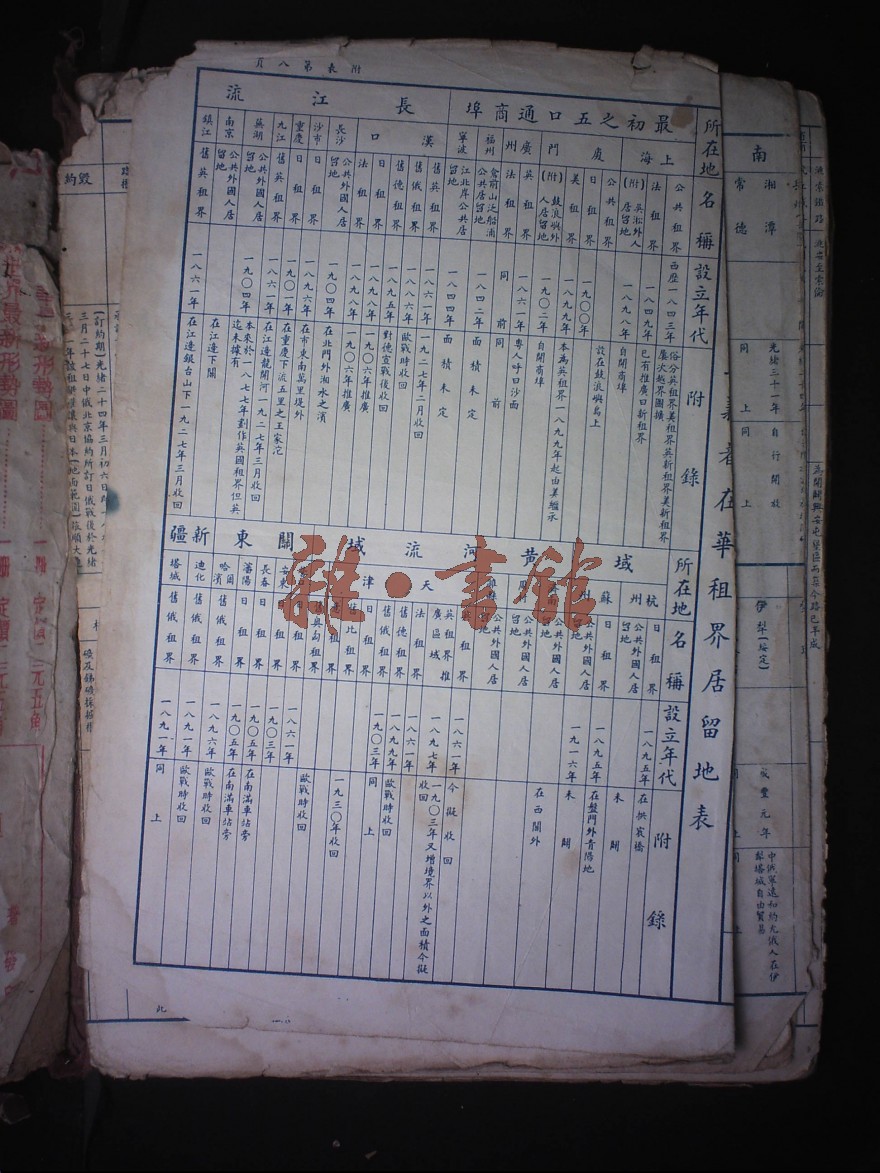 附表第八月
美者在華租界居留地表
所在地
名稱
設立年代
附錄
最初之五口通商埠
上海
公共租界
西歷一八四三年
俗分英租界美租界英新租界美新租界
屢次越界圈擴
法租界
一八四九年
已有推廣曰新租界
(附)吳淞外人居留地
一八九八年
自開商埠
廈門
公共租界
日租界
一九〇〇年
設在鼓浪嶼島上
美租界
一八九九年
本為英租界一八九九年起由美繼承
(附)鼓浪嶼外人居留地
一九〇二年
自開商埠
廣州
英租界
一八六一年
專人呼曰沙面
法租界
同前
同前
福州
倉前山泛船浦公共居留地
一八四二年
面積未定
寧波
江北岸公共居留地
一八四四年
面積未定
長江流
漢口
舊英租界
一八六一年
一九二七年二月收回
舊俄租界
一八八六年
歐戰時收回
舊德租界
一八九五年
對德宣戰後收回
日租界
一八九八年
一九〇六年推廣
法租界
一八九八年
一九〇六年推廣
長沙
公共外國人居留地
一九〇四年
在北門外湘水之濱
沙市
日租界
一八九六年
在市東南萬里堤外
重慶
日租界
一九〇一年
在重慶下流五里之王家沱
九江
舊英租界
一八六一年
在江邊龍開河一九二七年三月收回
蕪湖
公共外國人居留地
一九〇四年
本來於一八七七年劃作英國租界但英迄未據有
南京
公共外國人居留地
在江邊下關
鎮江
舊英租界
一八六一年
在江邊銀台山下一九二七年三月收回
所在地
名稱
設立年代
附錄
域
杭州
日租界
一八九五年
在拱宸橋
公共外國人居留地
未開
蘇州
日租界
一八九五年
在盤門外青陽地
公共外國人居留地
未開
公共外國人居留地
一九一六年
在西關外
公共外國人居留地
公共外國人居留地
黃河流域
天津
英租界推廣區域
一八六一年
今擬收回
一八九七年
一九〇三年又增境界以外之面積今擬收回
法租界
一八六一年
舊德租界
一八九九年
歐戰時收回
舊俄租界
一九〇三年
同上
日租界
舊比租界
一九三〇年收回
舊奧匈租界
歐戰時收回
關東
安東
日租界
一八六一年
長春
日租界
一九〇三年
瀋陽
日租界
一九〇五年
在南滿車站旁
哈爾濱
舊俄租界
一八九六年
歐戰時收回
新疆
迪化
舊俄租界
一八九一年
歐戰時收回
塔城
舊俄租界
一八九一年
同上
雜·書館
南
湘潭
常德
光緒三十一年
自行開放
同上
同上
伊犁(綏定)
咸豐元年
中俄寧遠和約允俄人在伊犁塔城自由貿易
毀約
(訂約期)光緒二十四年三月初六日
三月二十七日中俄北京協約所訂日俄戰後於光緒
界最新形勢圖
北